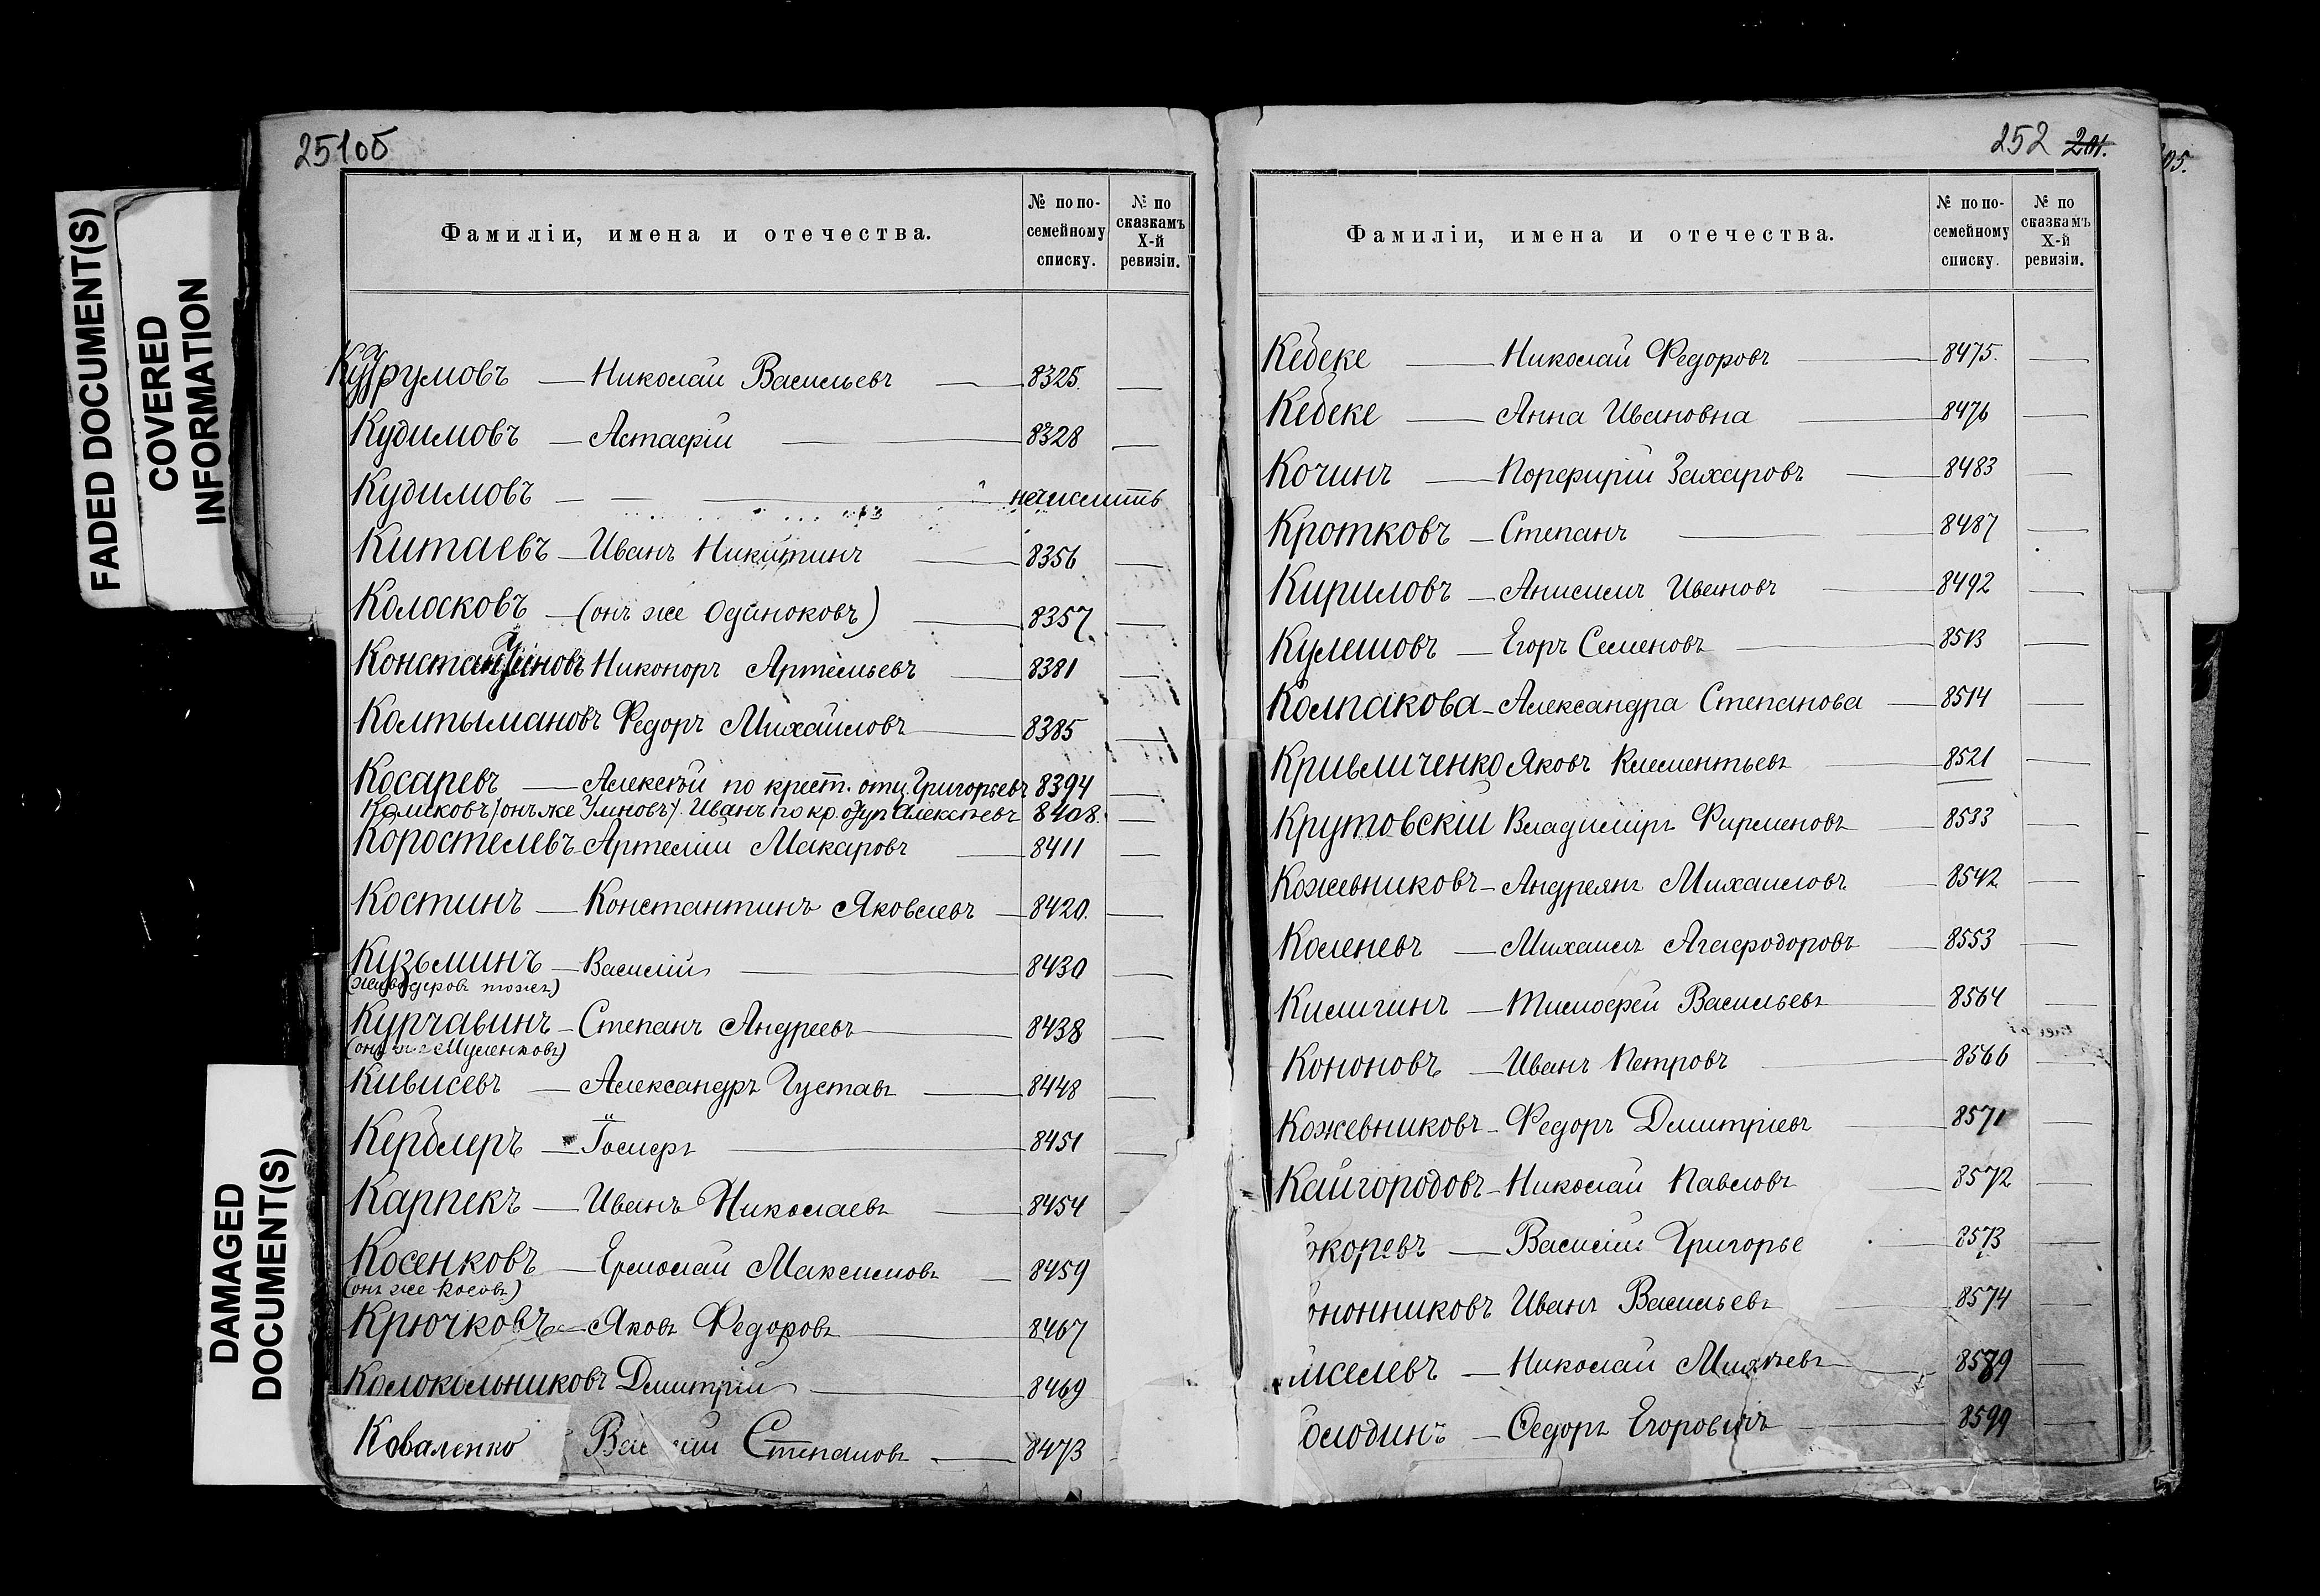 FADED DOCUMENT(S)
COVERED
INFORMATION
DAMAGED
DOCUMENT(S)
251об
Фамиліи, имена и отечества.
№ по по-
семейному
списку.
№ по
сказкамъ
X-й
ревизіи.
Николай Васильевъ — 8325. —
Кудимовъ — Астафій — 8328 —
Кудимовъ — —
Китаевъ — Иванъ Никитинъ — 8356 —
Колосковъ — (онъ же Одиноковъ) — 8357 —
Константиновъ Никоноръ Артемьевъ — 8381 —
Колтымановъ Федоръ Михайловъ — 8385 —
Косаревъ — Алексѣй по крест. отц. Григорьевъ 8394 —
Иванъ по кр. Алексѣевъ 8408. —
Коростелевъ Артемій Макаровъ — 8411 —
Костинъ — Константинъ Яковлевъ — 8420. —
Кузьминъ — Василій — 8430 —
Курчавинъ — Степанъ Андреевъ — 8438 —
Кивисевъ — Александръ Густавъ — 8448 —
Керблеръ — — 8451 —
Карпекъ — Иванъ Николаевъ — 8454 —
Косенковъ — Ермолай Максимовъ — 8459
(онъ же Косовъ)
Крючковъ — Яковъ Федоровъ — 8467
Колокольниковъ Дмитрій — 8469
Коваленко Василій Степановъ — 8473
252 201.
Фамиліи, имена и отечества.
№ по по-
семейному
списку.
№ по
сказкамъ
X-й
ревизіи.
Кебеке — Николай Федоровъ — 8475. —
Кебеке — Анна Ивановна — 8476 —
Кочинъ — Порфирій Захаровъ — 8483 —
Кротковъ — Степанъ — 8487 —
Кириловъ — Анисимъ Ивановъ — 8492 —
Кулешовъ — Егоръ Семеновъ — 8513 —
Колпакова — Александра Степанова — 8514 —
Кривличенко Яковъ Клементьевъ — 8521 —
Крутовскій Владиміръ Фирменовъ — 8533 —
Кожевниковъ — Андреянъ Михаиловъ — 8542 —
Коленевъ — Михаилъ Агафодоровъ — 8553 —
Киличинъ — Тимофей Васильевъ — 8564 —
Кононовъ — Иванъ Петровъ — 8566 —
Кожевниковъ — Федоръ Дмитріевъ — 8571 —
Кайгородовъ — Николай Павловъ — 8572 —
коревъ — Василій Григорье — 8573 —
ононниковъ Иванъ Васильевъ — 8574 —
иселевъ — Николай — 8589 —
олодинъ — Федоръ Егоровичъ — 8599 —